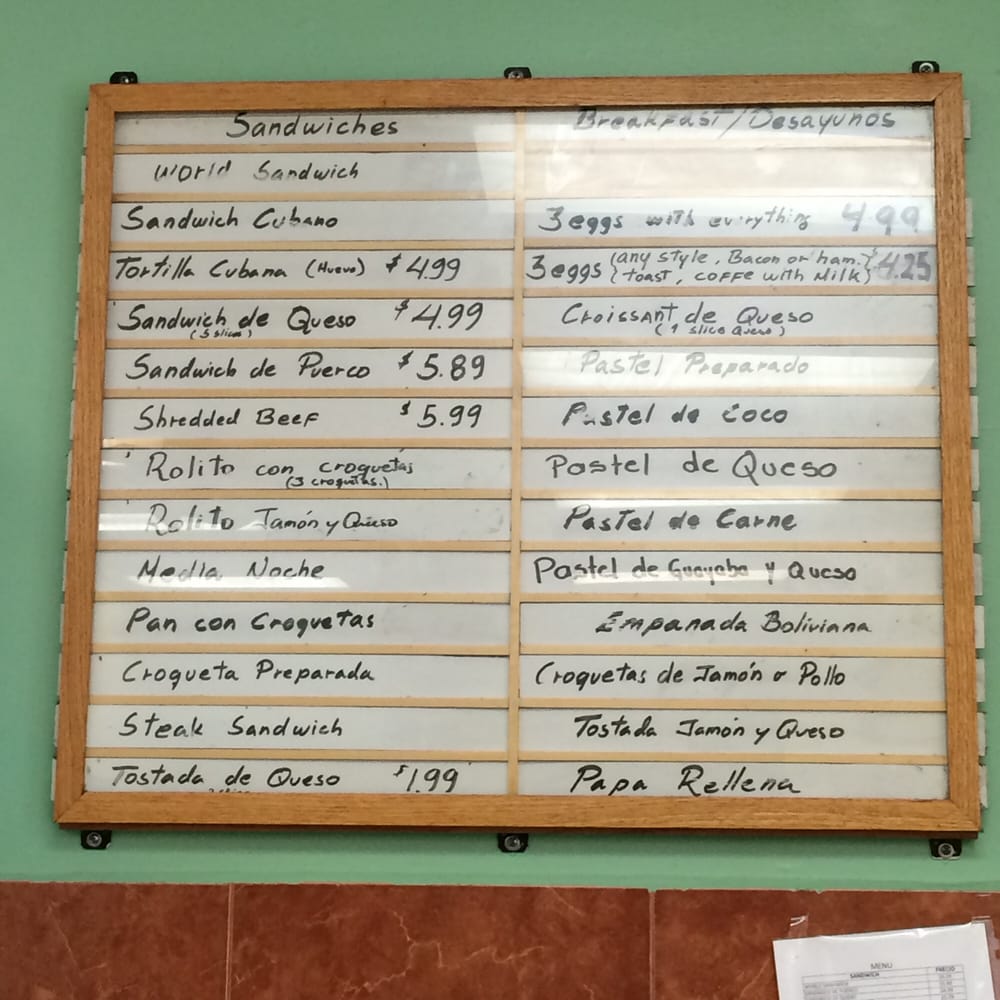 Sandwiches
World Sandwich
Sandwich Cubano
Tortilla Cubana (Huevo) $4.99
Sandwich de Queso $4.99
(5 slices)
Sandwich de Puerco $5.89
Shredded Beef $5.99
Rolito con croquetas
(3 croquetas.)
Rolito Jamón y Queso
Media Noche
Pan con Croquetas
Croqueta Preparada
Steak Sandwich
Tostada de Queso $1.99
Breakfast/Desayunos
3 eggs with everything 4.99
3 eggs (any style, Bacon or ham. $4.25
toast, coffe with Milk)
Croissant de Queso
(1 slice Queso)
Pastel Preparado
Pastel de Coco
Pastel de Queso
Pastel de Carne
Pastel de Guayaba y Queso
Empanada Boliviana
Croquetas de Jamón o Pollo
Tostada Jamón y Queso
Papa Rellena
MENU
SANDWICH PRECIO